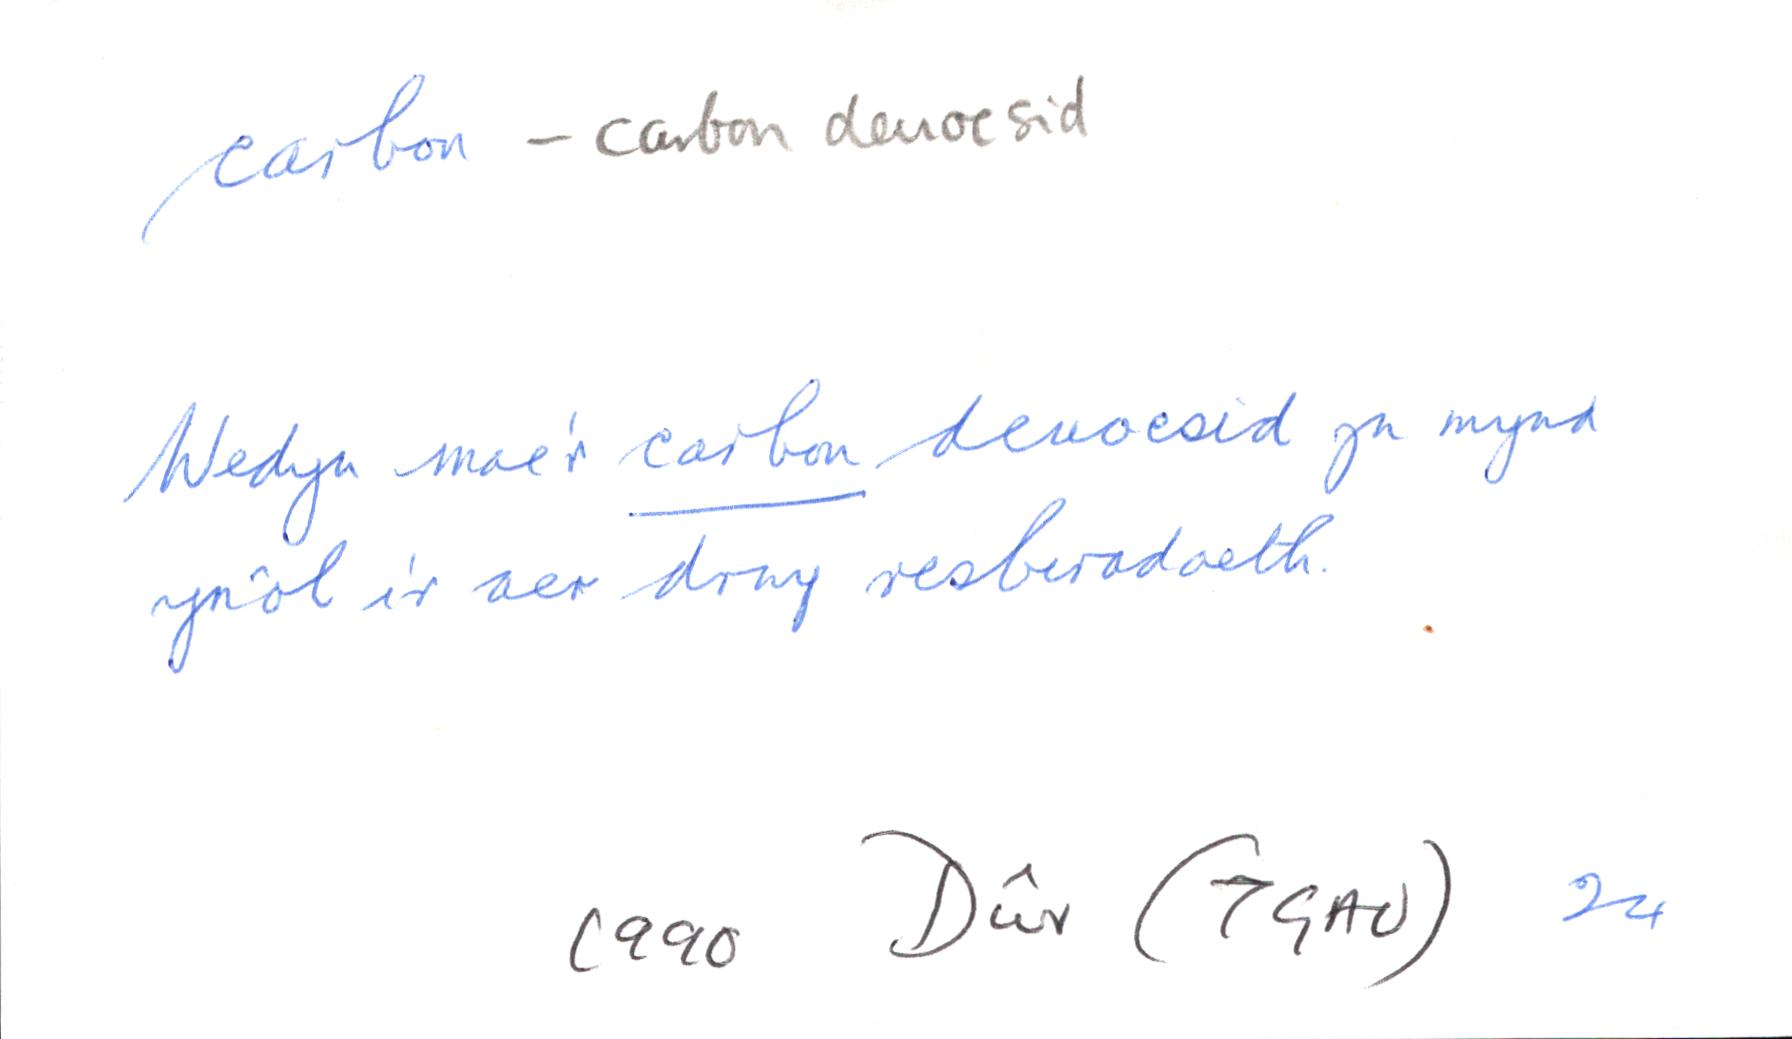 carbon - carbon deuocsid
Wedyn mae'r carbon deuocsid yn mynd
ynôl i'r aer drwy resbiradaeth.
1990 Dŵr (TGAU) 24